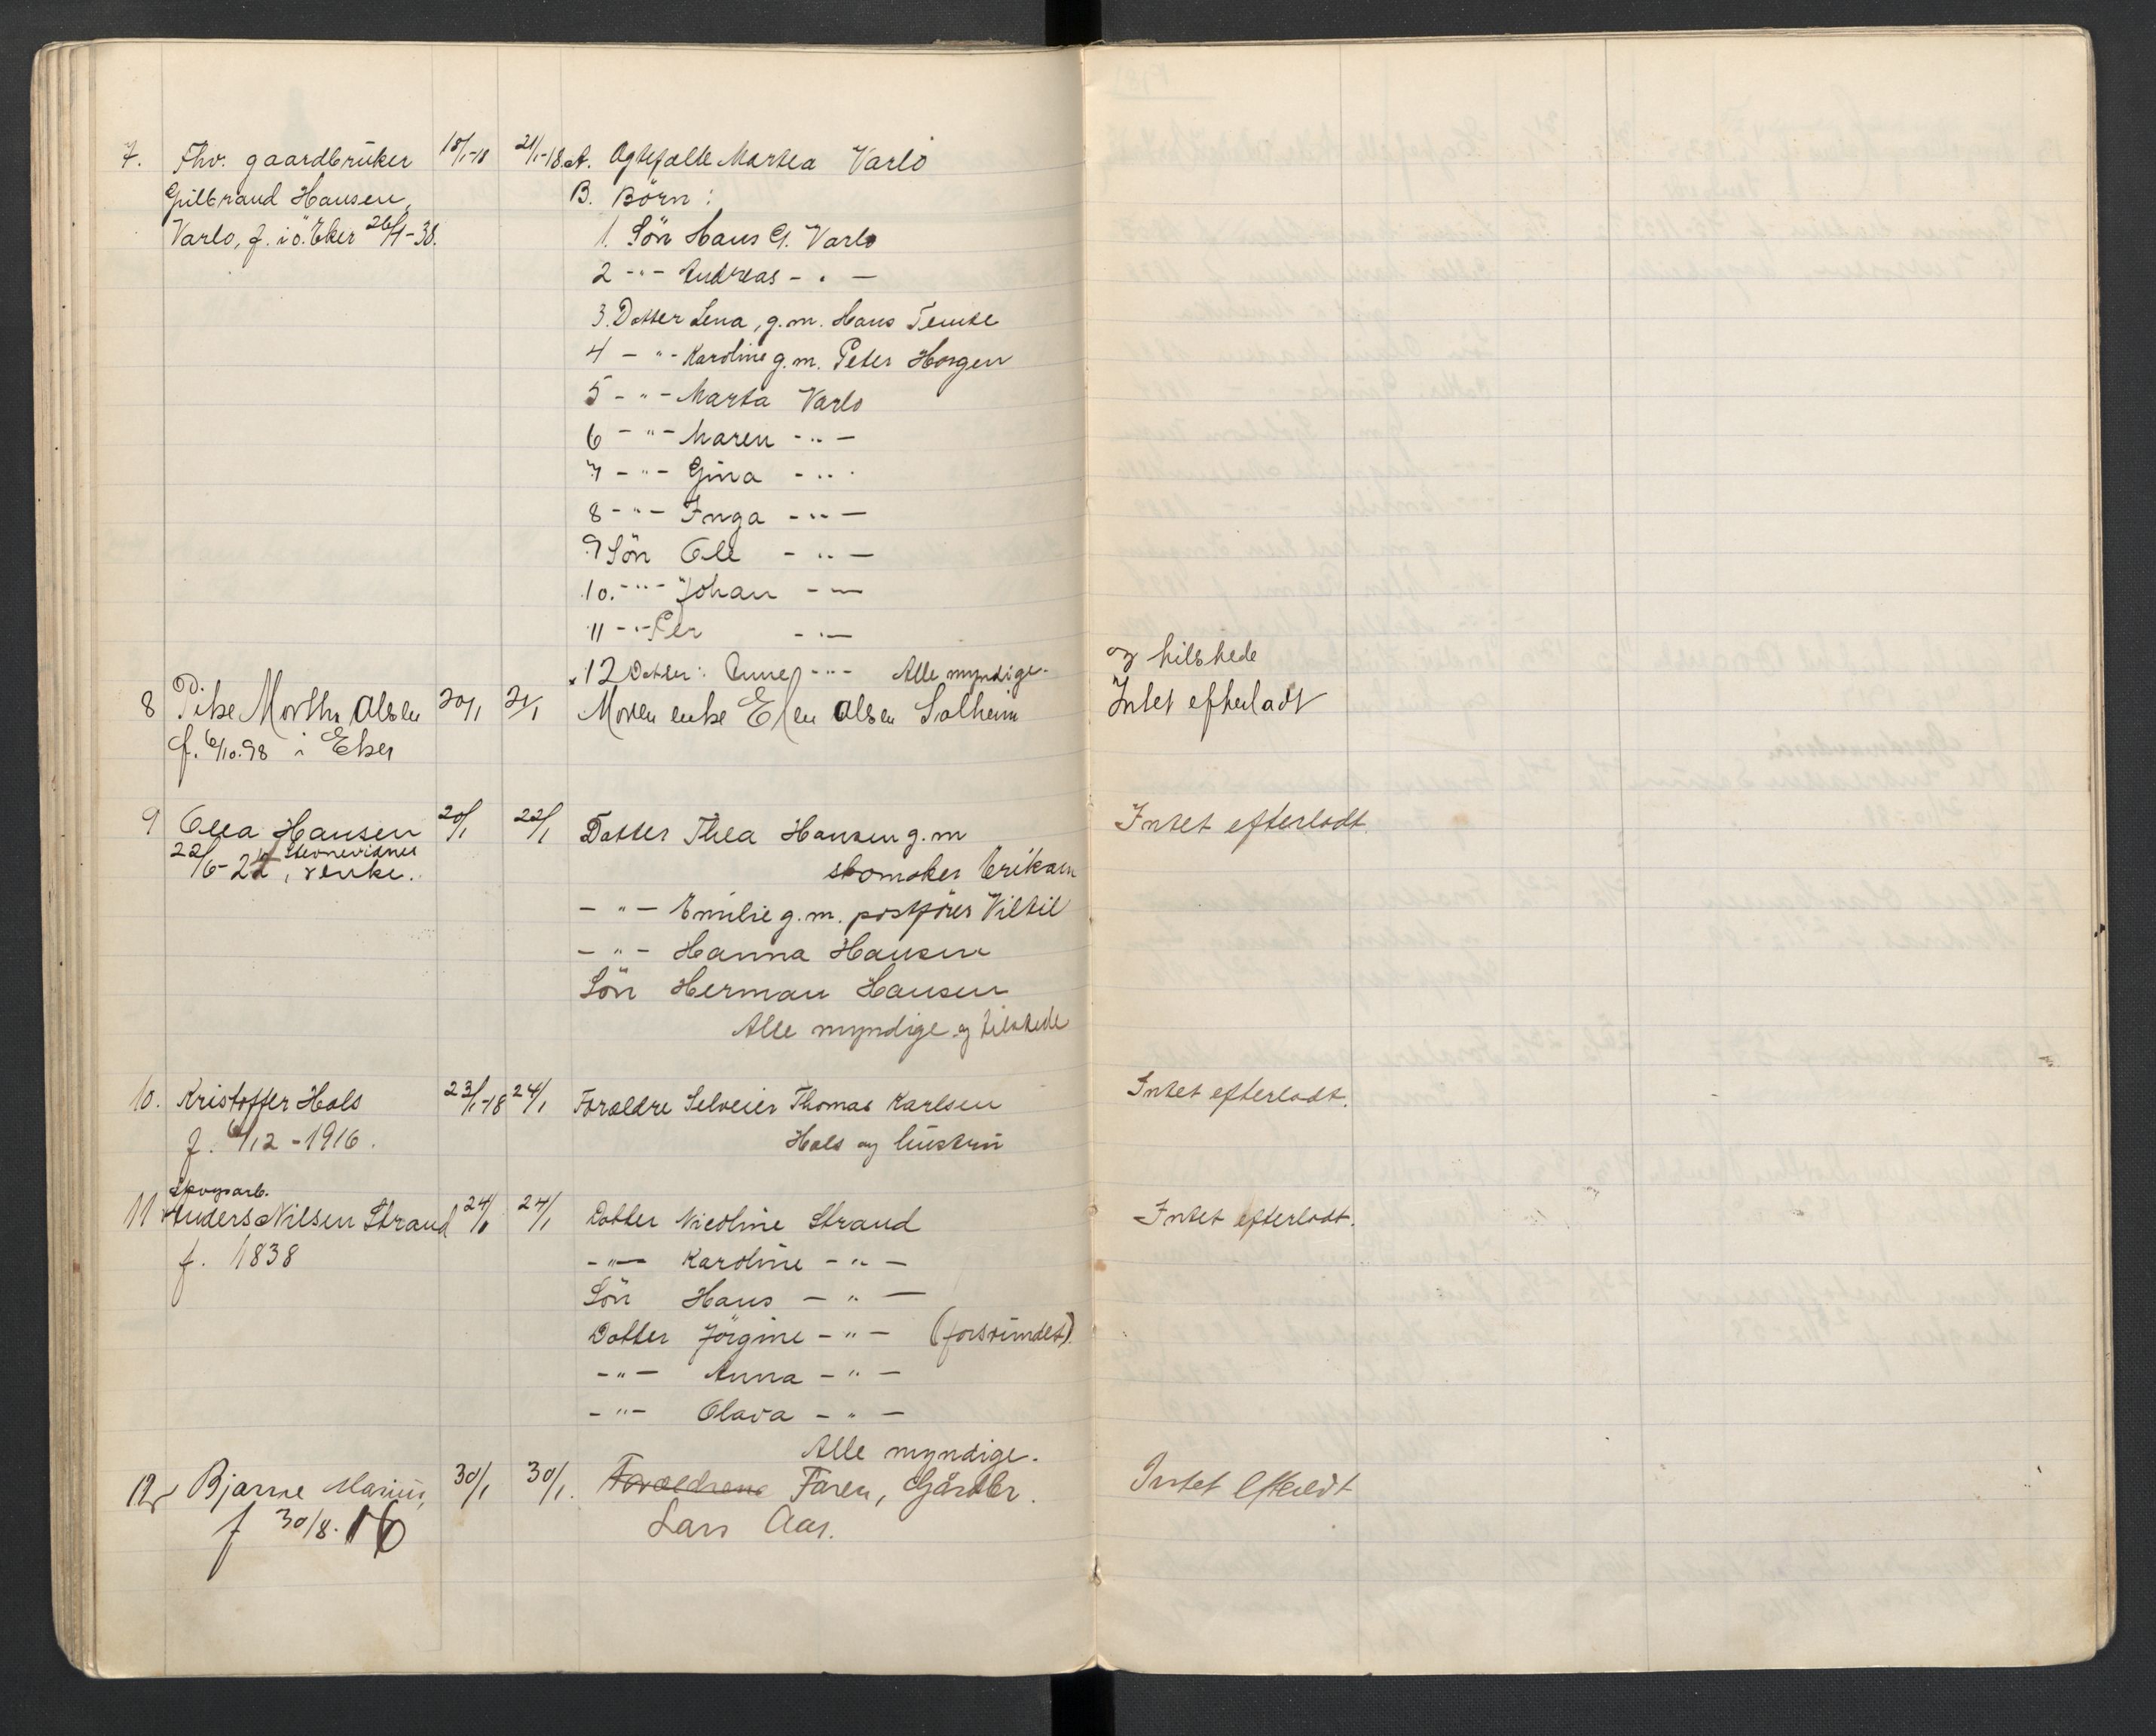 7. Fhv. gaardbrüker 18/1-18 21/1-18. A. Ægtefælle Martea Varlo
Gülbrand Hansen, B. Börn:
Varlo, f. i ö. Eker 26/4-38. 1. Sön Hans G. Varlo
2 -"- Andreas -"-
3. Datter Lena, g.m. Hans Temte
4 -"- Karoline g.m. Peter Horgen
5 -"- Marta Varlo
6 -"- Maren -"-
7 -"- Gina -"-
8 -"- Inga -"-
9 Sön Ole -"-
10. -"- Johan -"-
11 -"- Per -"-
12 Datter: Anne -"- Alle myndige. og tilstede
8 Pike Morthe Olsen 20/1 21/1 Moren enke Elen Olsen Solheim Intet efterladt
f. 6/10.98 i Eker
9 Olea Hansen 20/1 22/1 Datter Thea Hansen g.m Intet efterladt.
22/6-24, enke. skomaker Eriksen
-"- Emilie g.m. postförer Viltil
-"- Hanna Hansen
Sön Herman Hansen
Alle myndige og tilstede
10. Kristoffer Hals 23/1-18 24/1 Forældre Selveier Thomas Karlsen Intet efterladt.
f. 6/12-1916. Hals og hüstrü
Skogsarb.
11 Anders Nilsen Strand 24/1 24/1 Datter Nicoline Strand Intet efterladt.
f. 1838 -"- Karoline -"-
Sön Hans -"-
Datter Jörgine -"- (forsvündet)
-"- Anna -"-
-"- Olava -"-
Alle myndige.
12 Bjarne Marius, 30/1 30/1. Forældrene Faren, Gårdbr. Intet Efterladt
f 30/8.16 Lars Aas.